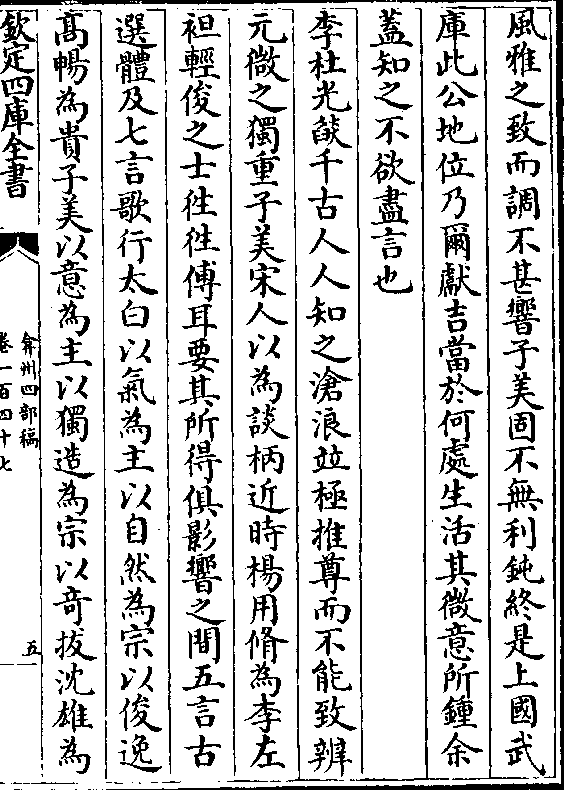 風雅之致而調不甚響子美固不無利鈍終是上國武
庫此公地位乃爾獻吉當於何處生活其微意所鍾余
蓋知之不欲盡言也
李杜光燄千古人人知之滄浪並極推尊而不能致辨
元微之獨重子美宋人以為談柄近時楊用脩為李左
袒輕俊之士徃徃傅耳要其所得俱影響之間五言古
選體及七言歌行太白以氣為主以自然為宗以俊逸
髙暢為貴子美以意為主以獨造為宗以竒拔沈雄為
欽定四庫全書
弇州四部稿
卷一百四十七
五